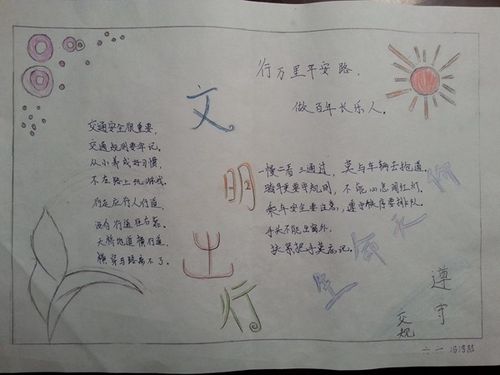 行万里平安路,
做百年长乐人。
文
明
出
行
交通安全很重要,
交通规则要牢记。
从小养成好习惯,
不在路上玩游戏。
行走应行人行道,
没有行道往右靠。
天桥地道横行道,
横穿马路离不了。
一慢二看三通过,莫与车辆去抢道。
骑车更要守规则,不能心急闯红灯。
乘车安全要注意,遵守秩序要排队。
手头不能出窗外,
扶紧把手莫忘记。
生命永
遵守
交规
六一